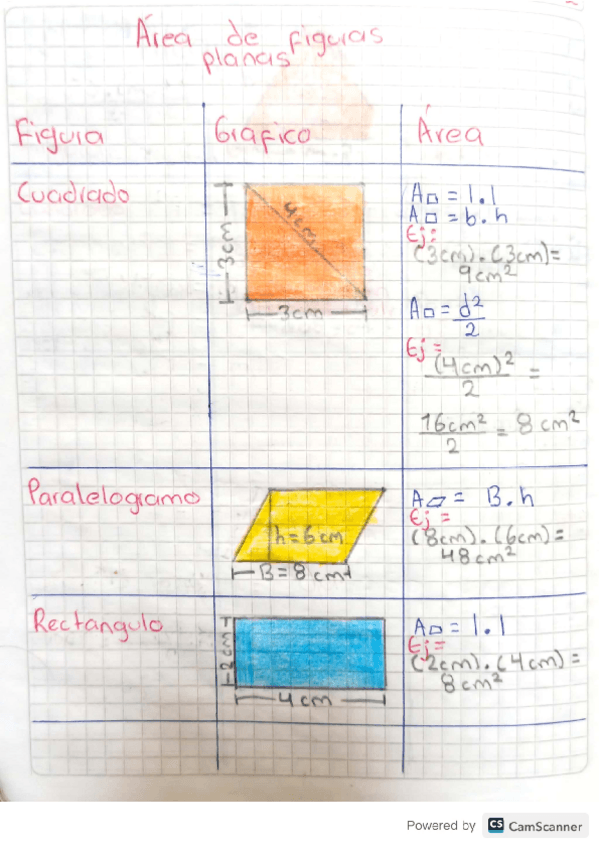 Área de figuras
planas
Figura
Gráfico
Área
Cuadrado
3cm
4cm
3cm
A□ = l.l
A□ = b.h
Ej:
(3cm).(3cm)=
9cm²
A□ = d²
2
Ej =
(4cm)² =
2
16cm² = 8 cm²
2
Paralelogramo
h=6cm
B=8cm
A▱ = B.h
Ej =
(8cm).(6cm)=
48cm²
Rectangulo
2cm
4cm
A▭ = l.l
Ej=
(2cm).(4cm)=
8cm²
Powered by CS CamScanner